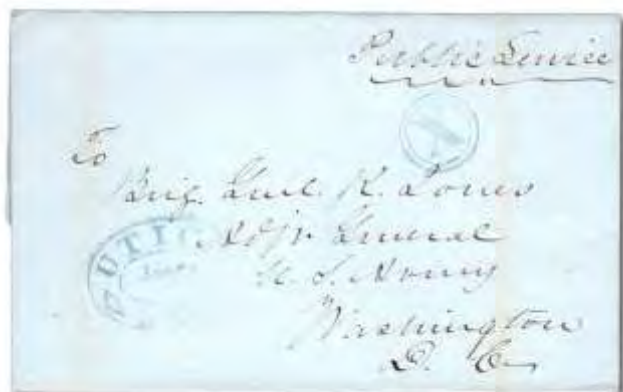 Public Service
To
Brig. Genl. R. Jones
Adjt. General
U. S. Army
Washington
D. C.
UTIC